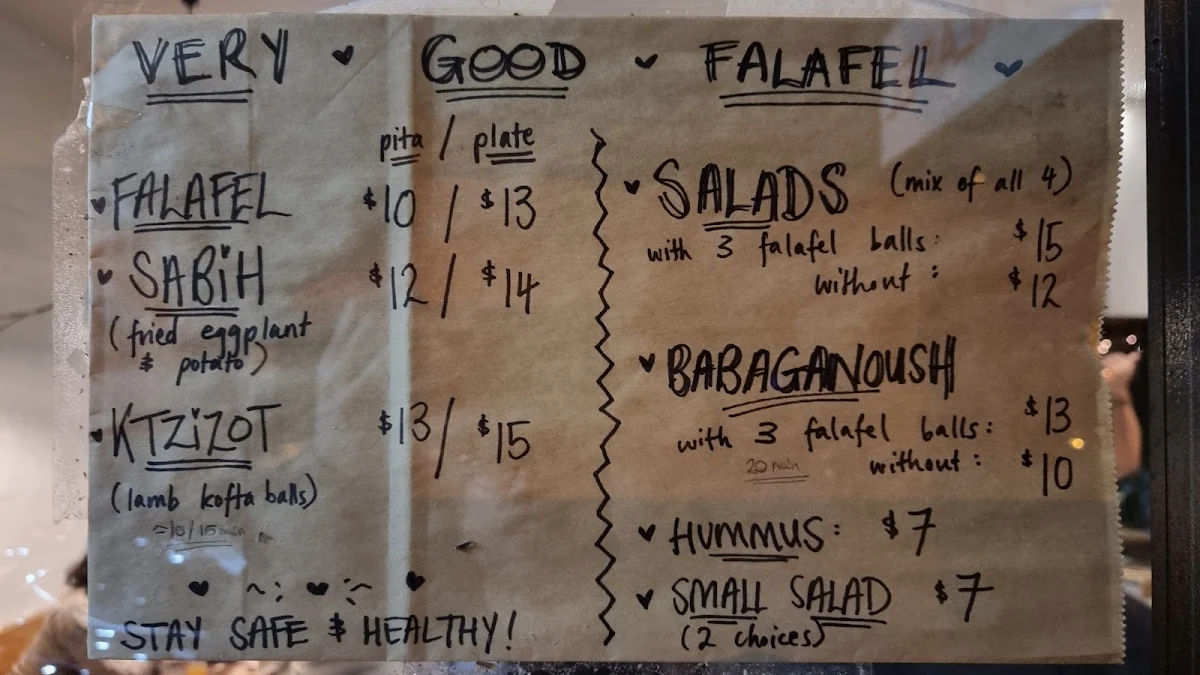 VERY GOOD FALAFEL
pita / plate
FALAFEL $10 / $13
SABiH $12 / $14
(fried eggplant
& potato)
KTZiZOT $13 / $15
(lamb kofta balls)
≈10/15 min
STAY SAFE & HEALTHY!
SALADS (mix of all 4)
with 3 falafel balls: $15
without: $12
BABAGANOUSH
with 3 falafel balls: $13
20 min without: $10
HUMMUS: $7
SMALL SALAD $7
(2 choices)